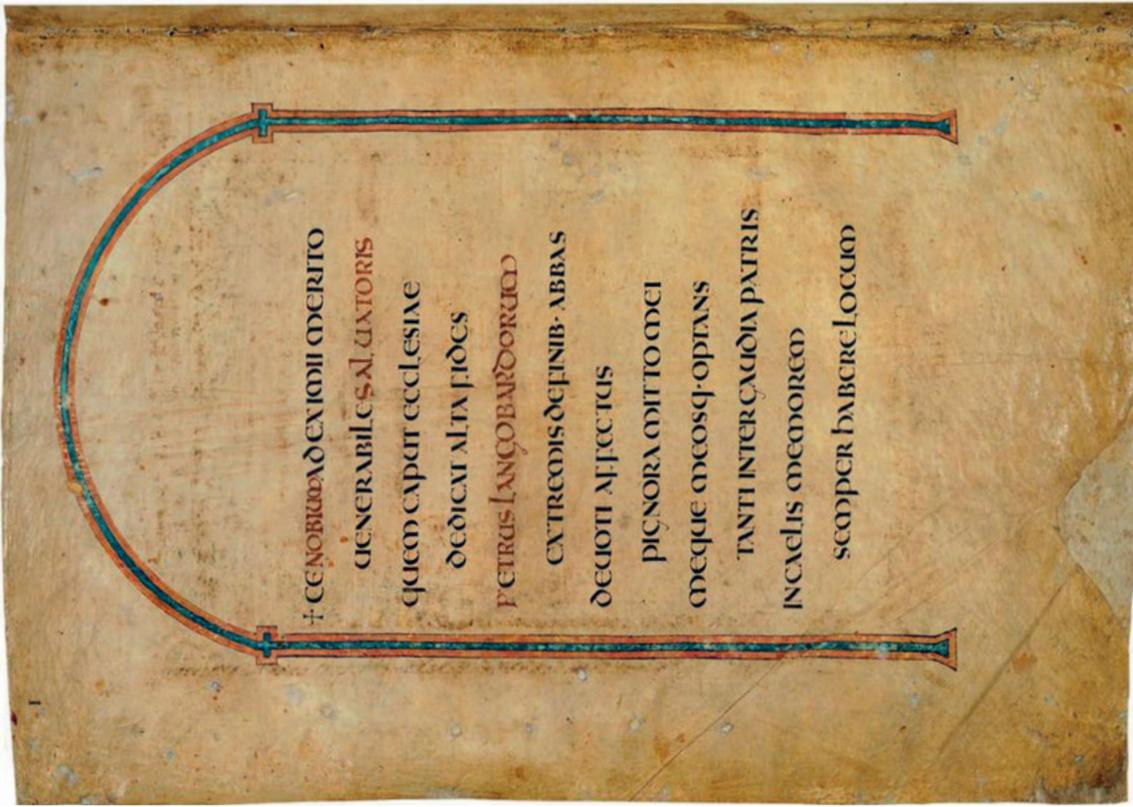 ✝ CENOBIUM AD EXIMII MERITO
UENERABILE SALUATORIS
QUEM CAPUT ECCLESIAE
DEDICAT ALTA FIDES
PETRUS LANGOBARDORUM
EXTREMIS DE FINIB· ABBAS
DEUOTI AFFECTUS
PIGNORA MITTO MEI
MEQUE MEOSQ· OPTANS
TANTI INTER GAUDIA PATRIS
IN CAELIS MEMOREM
SEMPER HABERE LOCUM
I